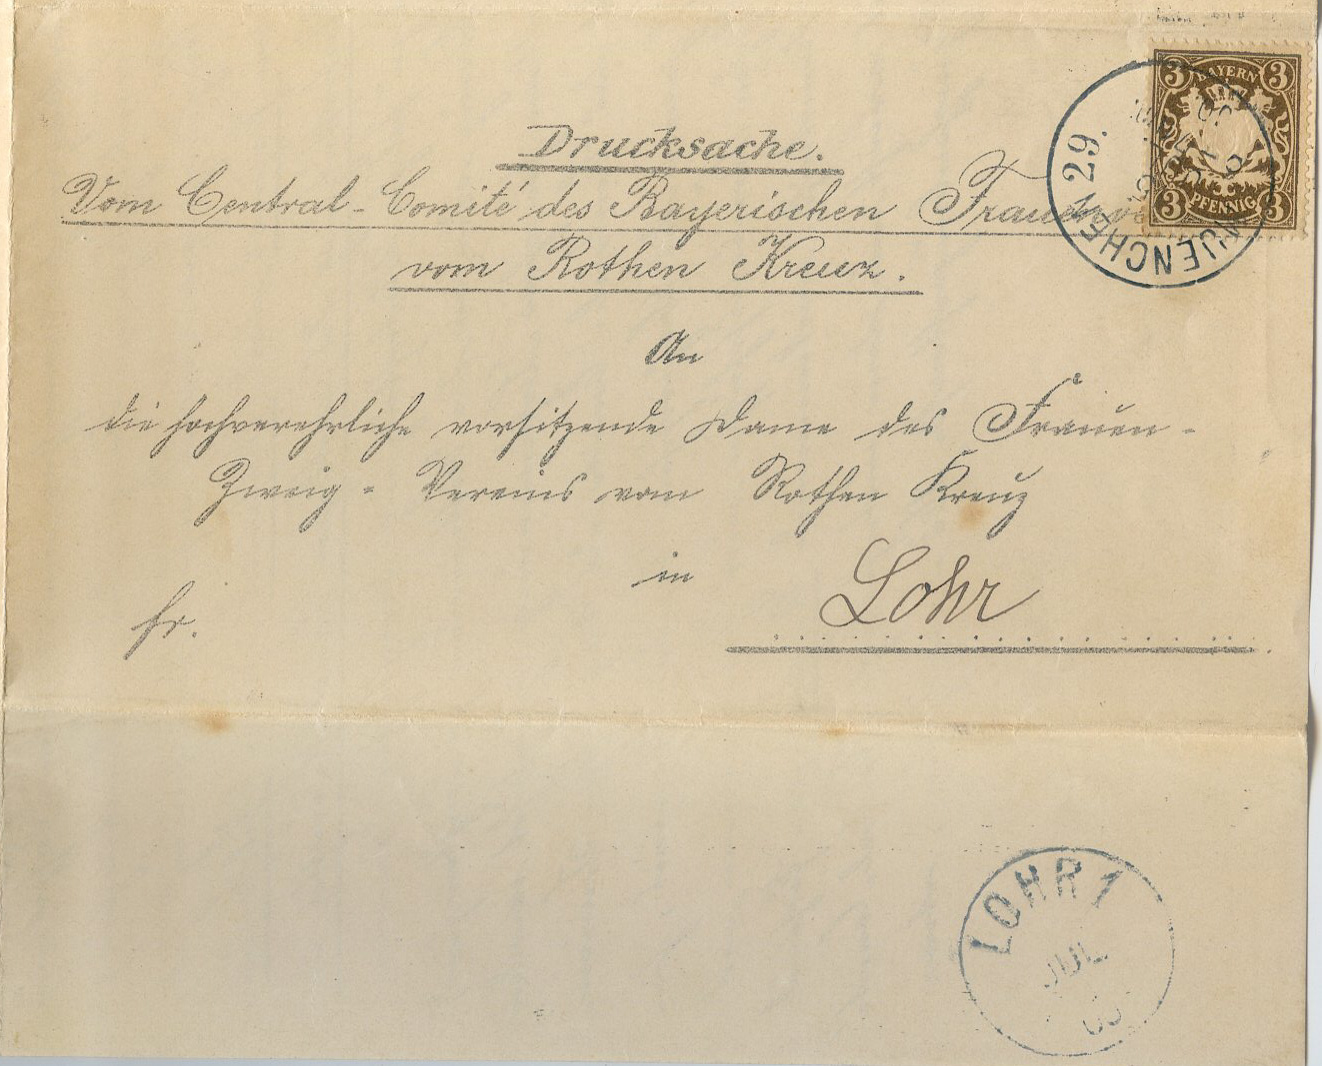 3 BAYERN 3
3 PFENNIG 3
MUENCHEN 29.
Drucksache.
Vom Central-Comité des Bayerischen Frauenve
vom Rothen Kreuz.
An
die hochverehrliche vorsitzende Dame des Frauen-
Zweig-Vereins vom Rothen Kreuz
in Lohr
fr.
LOHR 1
JUL
00